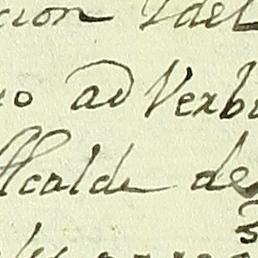 cion Ydel
ro ad Verbu
Alcalde de